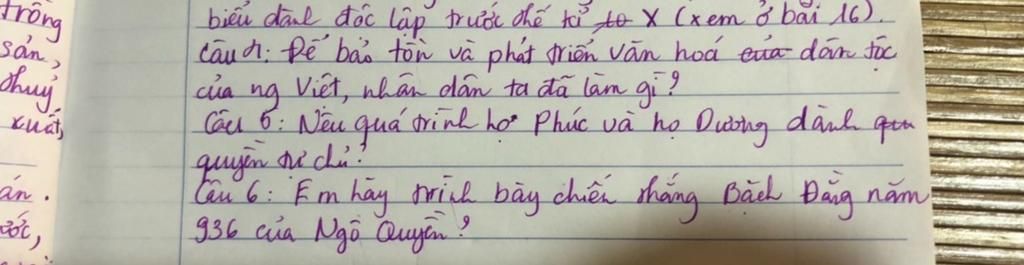 trông
sản,
thuỷ
xuất,
án.
ước,
biểu dành độc lập trước thế kỉ to X (xem ở bài 16).
Câu 4: Để bảo tồn và phát triển văn hoá của dân tộc
của ng Việt, nhân dân ta đã làm gì?
Câu 5: Nêu quá trình họ Phúc và họ Dương dành qu
quyền tự chủ?
Câu 6: Em hãy trình bày chiến thắng Bạch Đằng năm
936 của Ngô Quyền?